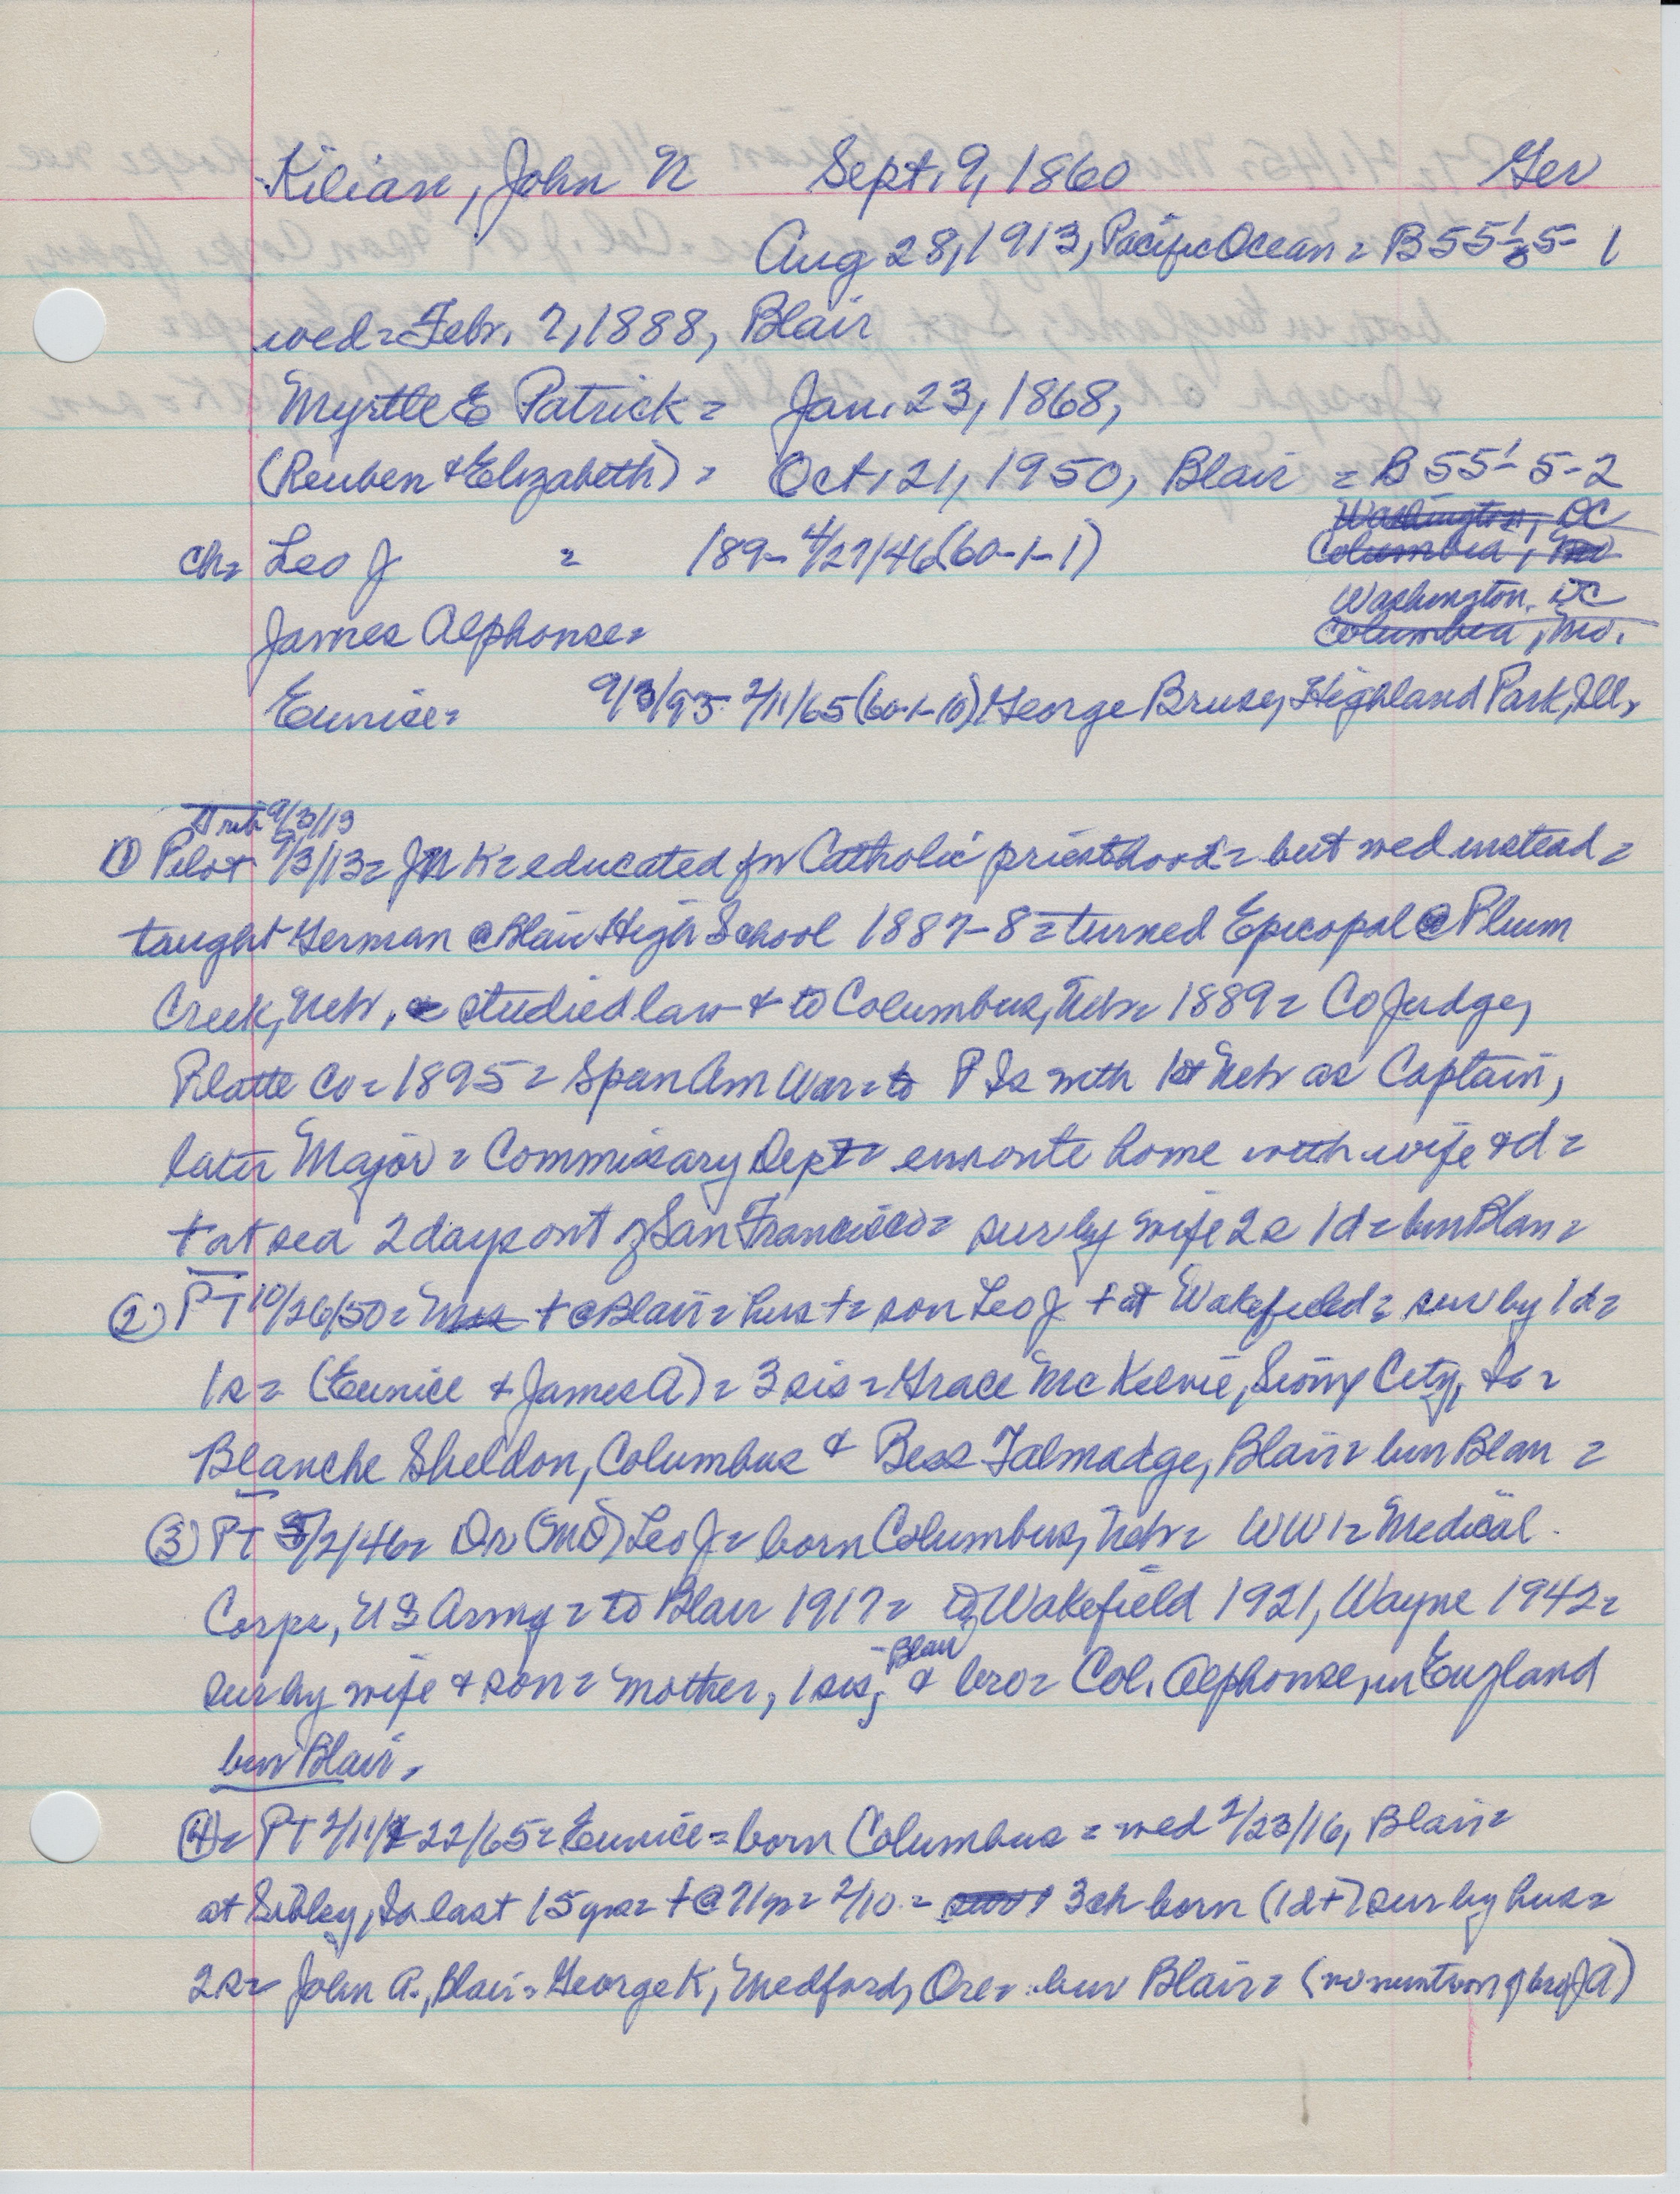 Kilian, John N Sept. 9, 1860 Ger
Aug 28, 1913, Pacific Ocean = B 55-5-1
wed = Febr. 7, 1888, Blair
Myrtle E Patrick = Jan. 23, 1868,
(Reuben & Elizabeth) = Oct. 21, 1950, Blair = B 55-5-2
Washington, DC
ch = Leo J = 189- 4/27/46 (60-1-1) Columbia, Mo
Washington, DC
James Alphonse = Columbia, Mo.
Eunice = 9/3/93 2/11/65 (60-1-10) George Bruse, Highland Park, Ill.
Trib 9/3/13
① Pilot 9/3/13 = JNK = educated for Catholic priesthood = but wed instead =
taught German @ Blair High School 1887-8 = turned Episcopal @ Plum
Creek, Nebr, studied law & to Columbus, Nebr = 1889 = Co Judge,
Platte Co = 1895 = Span Am War = to P Is with 1st Nebr as Captain,
later Major = Commissary Dept = enroute home with wife & d =
† at sea 2 days out of San Francisco = sur by wife 2s 1d = bur Blair =
② PT 10/26/50 = Mrs † @ Blair = hus † = son Leo J † at Wakefield = sur by 1d =
1s = (Eunice & James A) = 3 sis = Grace McKelvie, Sioux City, Ia =
Blanche Sheldon, Columbus & Bess Talmadge, Blair = bur Blair =
③ PT 5/2/46 = Dr (MD) Leo J = born Columbus, Nebr = WW 1 = Medical
Corps, US Army = to Blair 1917 = to Wakefield 1921, Wayne 1942 =
-Blair
sur by wife & son = mother, 1 sis, & bro = Col. Alphonse, in England
bur Blair.
④ = PT 2/11/& 22/65 = Eunice = born Columbus = wed 2/23/16, Blair =
at Sibley, Ia last 15 yrs = † @ 71 yr = 2/10 = 3 ch born (1d †) sur by hus =
2s = John A., Blair = George K, Medford, Ore = bur Blair = (no mention of bro J A)